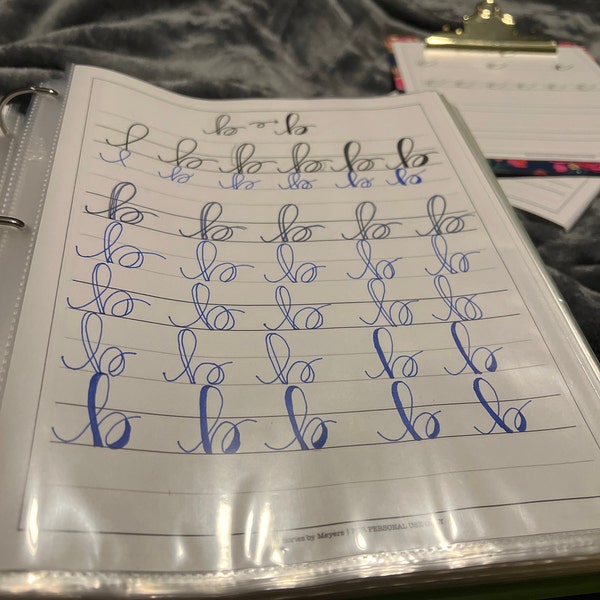 b → b
l b b b b b
l b b b b b
b b b b b
b b b b b
b b b b b
b b b b b
b b b b b
by Meyers | PERSONAL